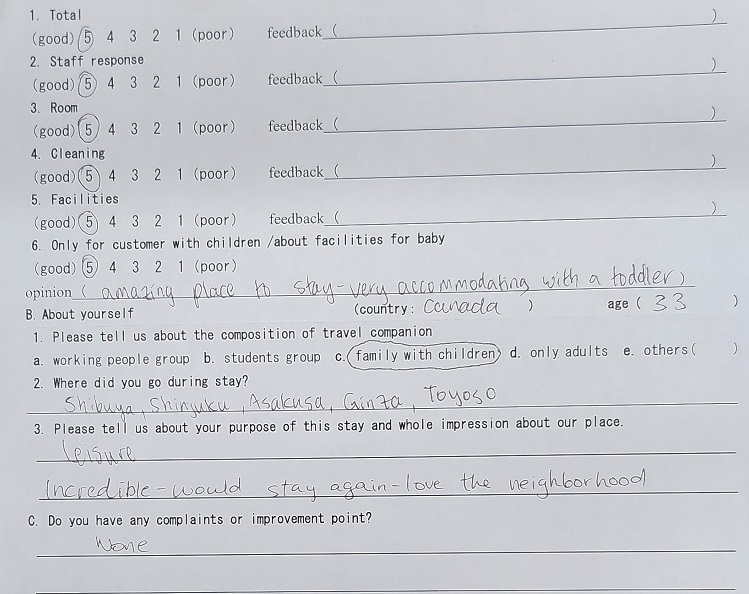 1. Total
(good) 5 4 3 2 1 (poor) feedback ( )
2. Staff response
(good) 5 4 3 2 1 (poor) feedback ( )
3. Room
(good) 5 4 3 2 1 (poor) feedback ( )
4. Cleaning
(good) 5 4 3 2 1 (poor) feedback ( )
5. Facilities
(good) 5 4 3 2 1 (poor) feedback ( )
6. Only for customer with children /about facilities for baby
(good) 5 4 3 2 1 (poor)
opinion ( amazing place to stay - very accommodating with a toddler )
B. About yourself (country: Canada ) age ( 33 )
1. Please tell us about the composition of travel companion
a. working people group b. students group c. family with children d. only adults e. others( )
2. Where did you go during stay?
Shibuya, Shinjuku, Asakusa, Ginza, Toyoso
3. Please tell us about your purpose of this stay and whole impression about our place.
Leisure
Incredible - would stay again - love the neighborhood
C. Do you have any complaints or improvement point?
None